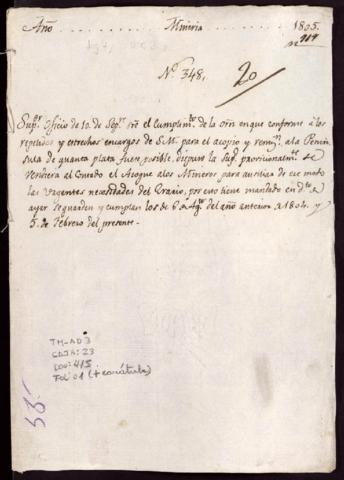 Año Mineria 1805.
nº 919
Nº 348,, 20
Supᵒʳ Oficio de 10. de Sepʳᵉ sre el cumplimᵗᵒ de la orn en que conforme à los
repetidos y estrechos encargos de S.M. para el acopio y remᵒⁿ à la Penin
sula de quanta plata fuese posible, dispuso la Supᵈ provisionalmᵗᵉ se
vendiera al Contado el Azogue a los Mineros para auxiliar de ese modo
las Urgentes necesidades del Erario, por esto tiene mandado en
ayer se guarden y cumplan los de 6 de Agᵗᵒ del año anterior de 1804. y
5. de Febrero del presente.
TM-AD3
CAJA: 23
DOC: 415
Fol: 01 (+ carátula)